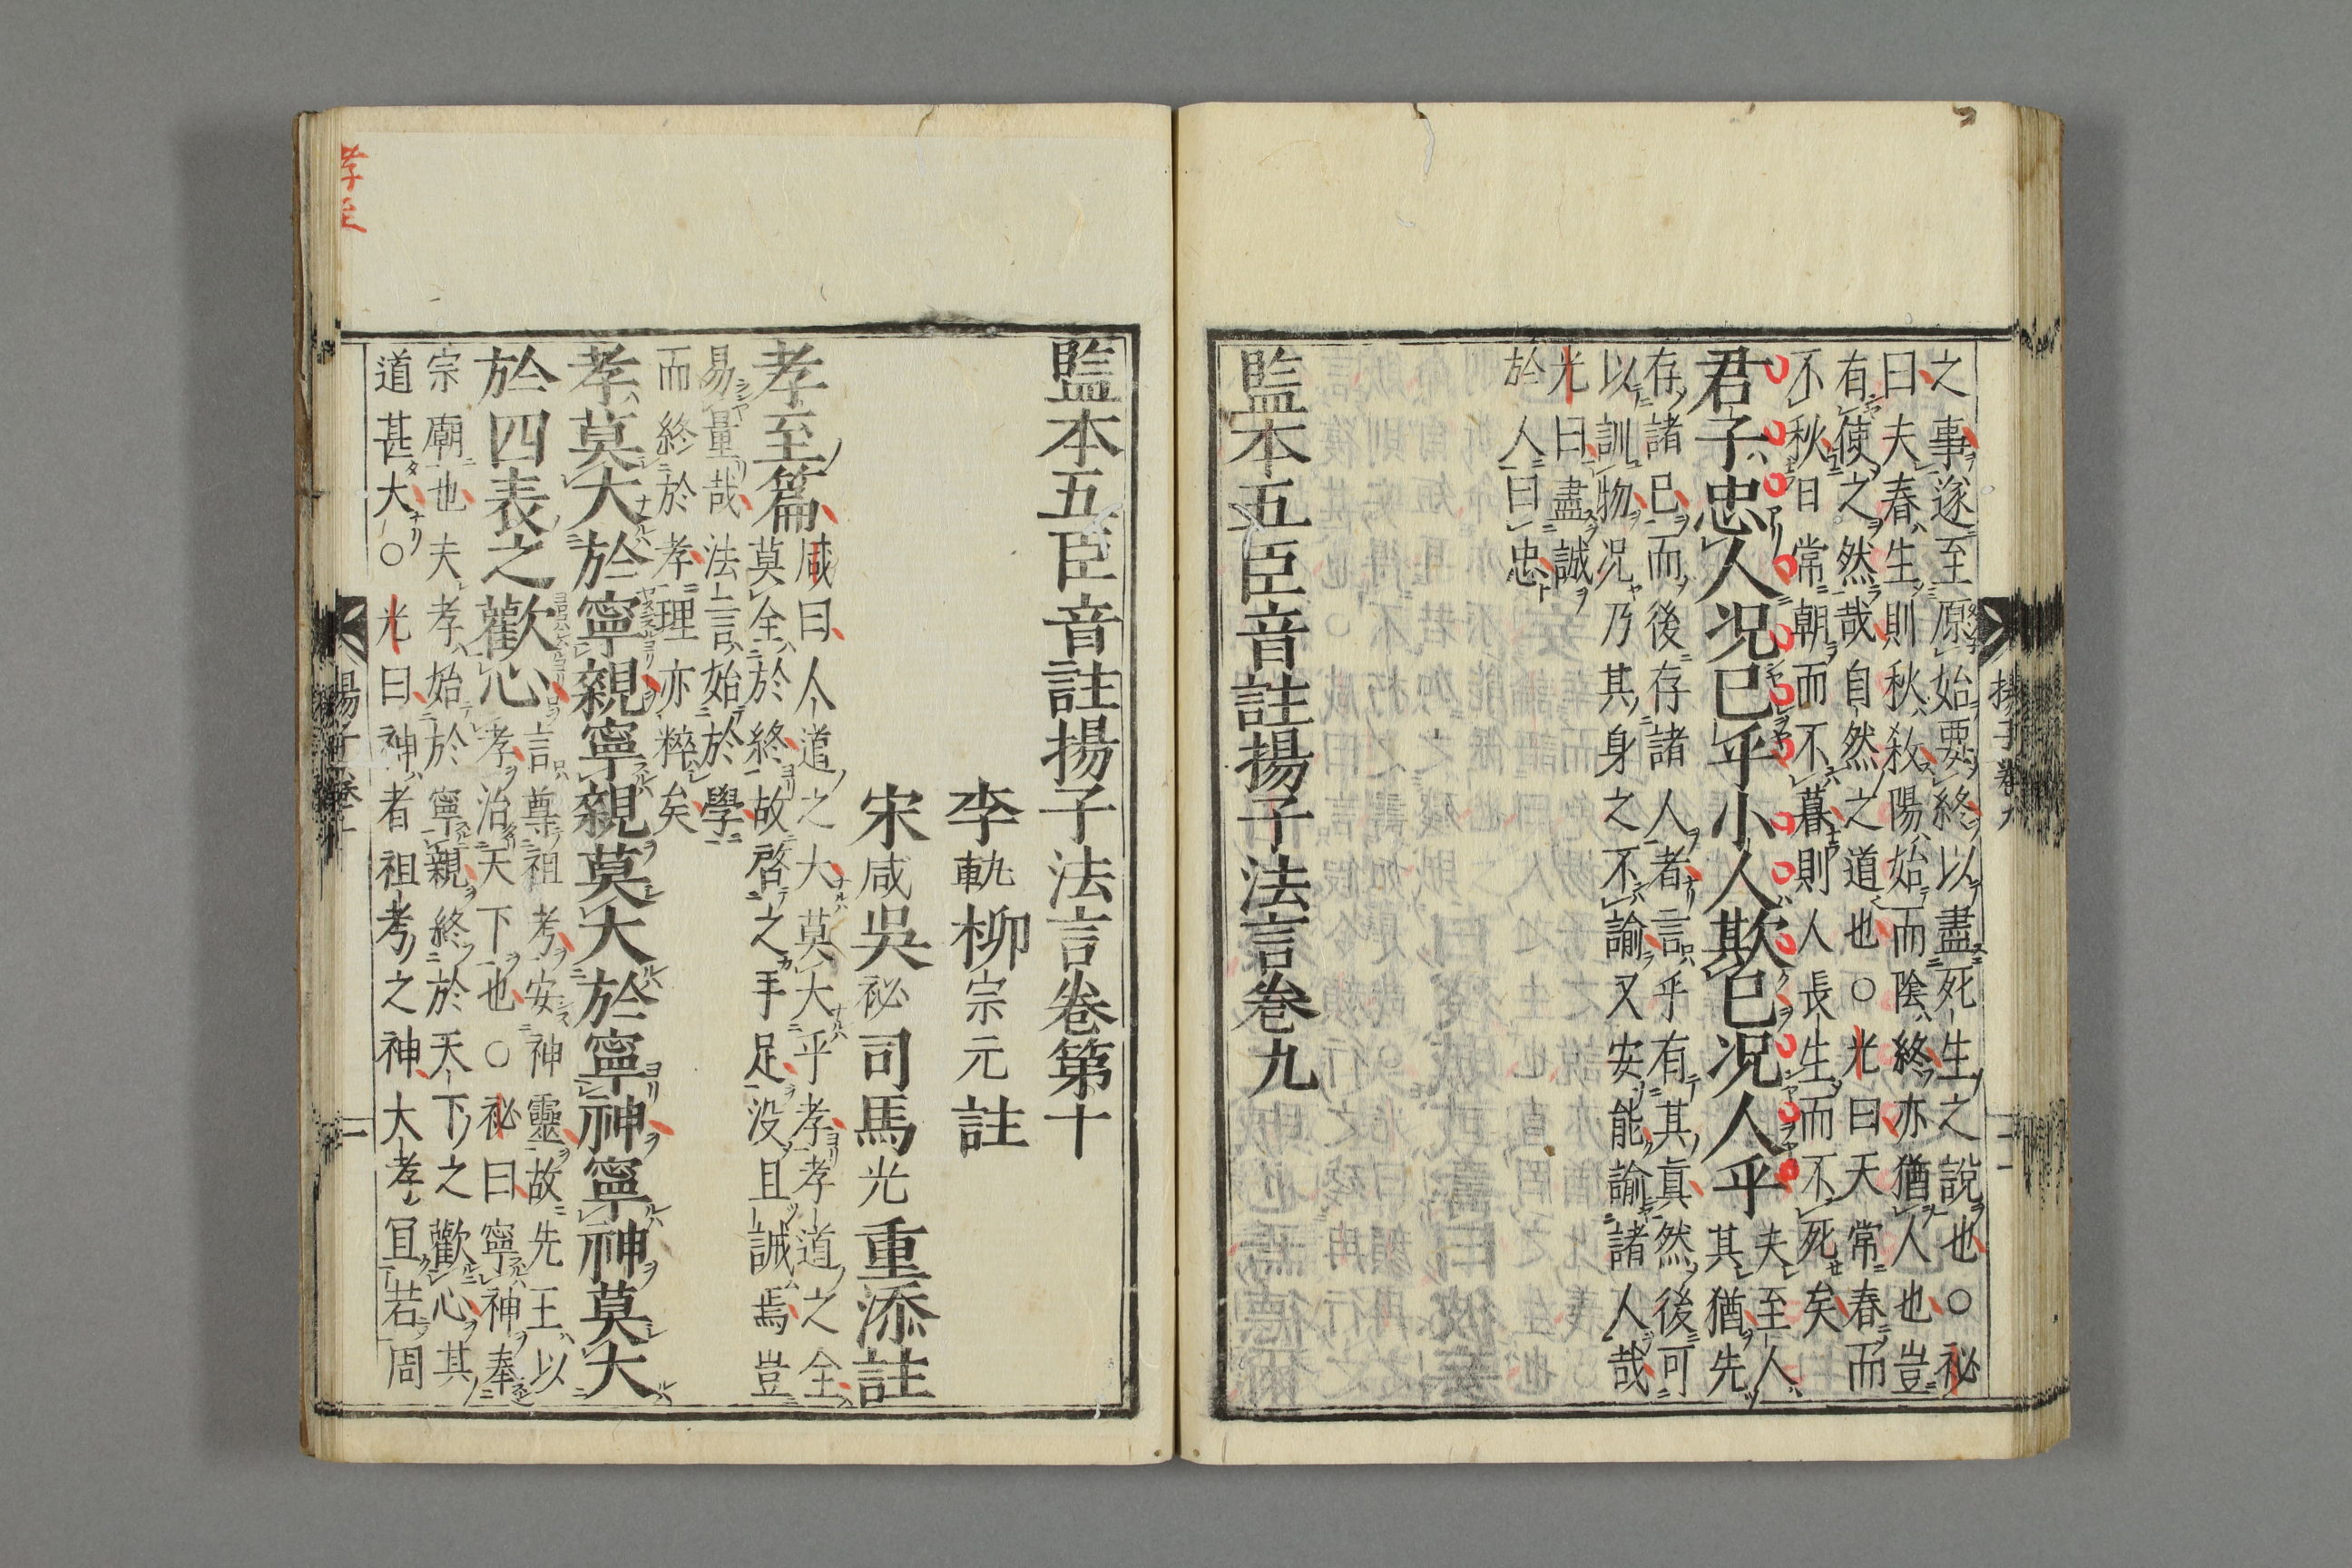 之事遂至原始要終以盡死生之說也○祕
曰夫春生則秋殺陽始而陰終亦猶人也豈
有使之然哉自然之道也○光曰天常春而
不秋日常朝而不暮則人長生而不死矣
君子忠人況己乎小人欺己況人乎
夫至人
其猶先
存諸己而後存諸人者言乎有其眞然後可
以訓物況乃其身之不諭又安能諭諸人哉
光曰盡誠
於人曰忠
監本五臣音註揚子法言卷九
揚子卷九
監本五臣音註揚子法言卷第十
李軌柳宗元註
宋咸吳祕司馬光重添註
孝至篇
咸曰人道之大莫大乎孝孝道之全
莫全於終故啓之手足没且誠焉豈
易量哉法言始於學
而終於孝理亦粹矣
孝莫大於寧親寧親莫大於寧神寧神莫大
於四表之歡心
言尊祖考安神靈故先王以
孝治天下也○祕曰寧神奉
宗廟也夫孝始於寧親終於天下之歡心其
道甚大○光曰神者祖考之神大孝冝若周
揚子卷十
孝至